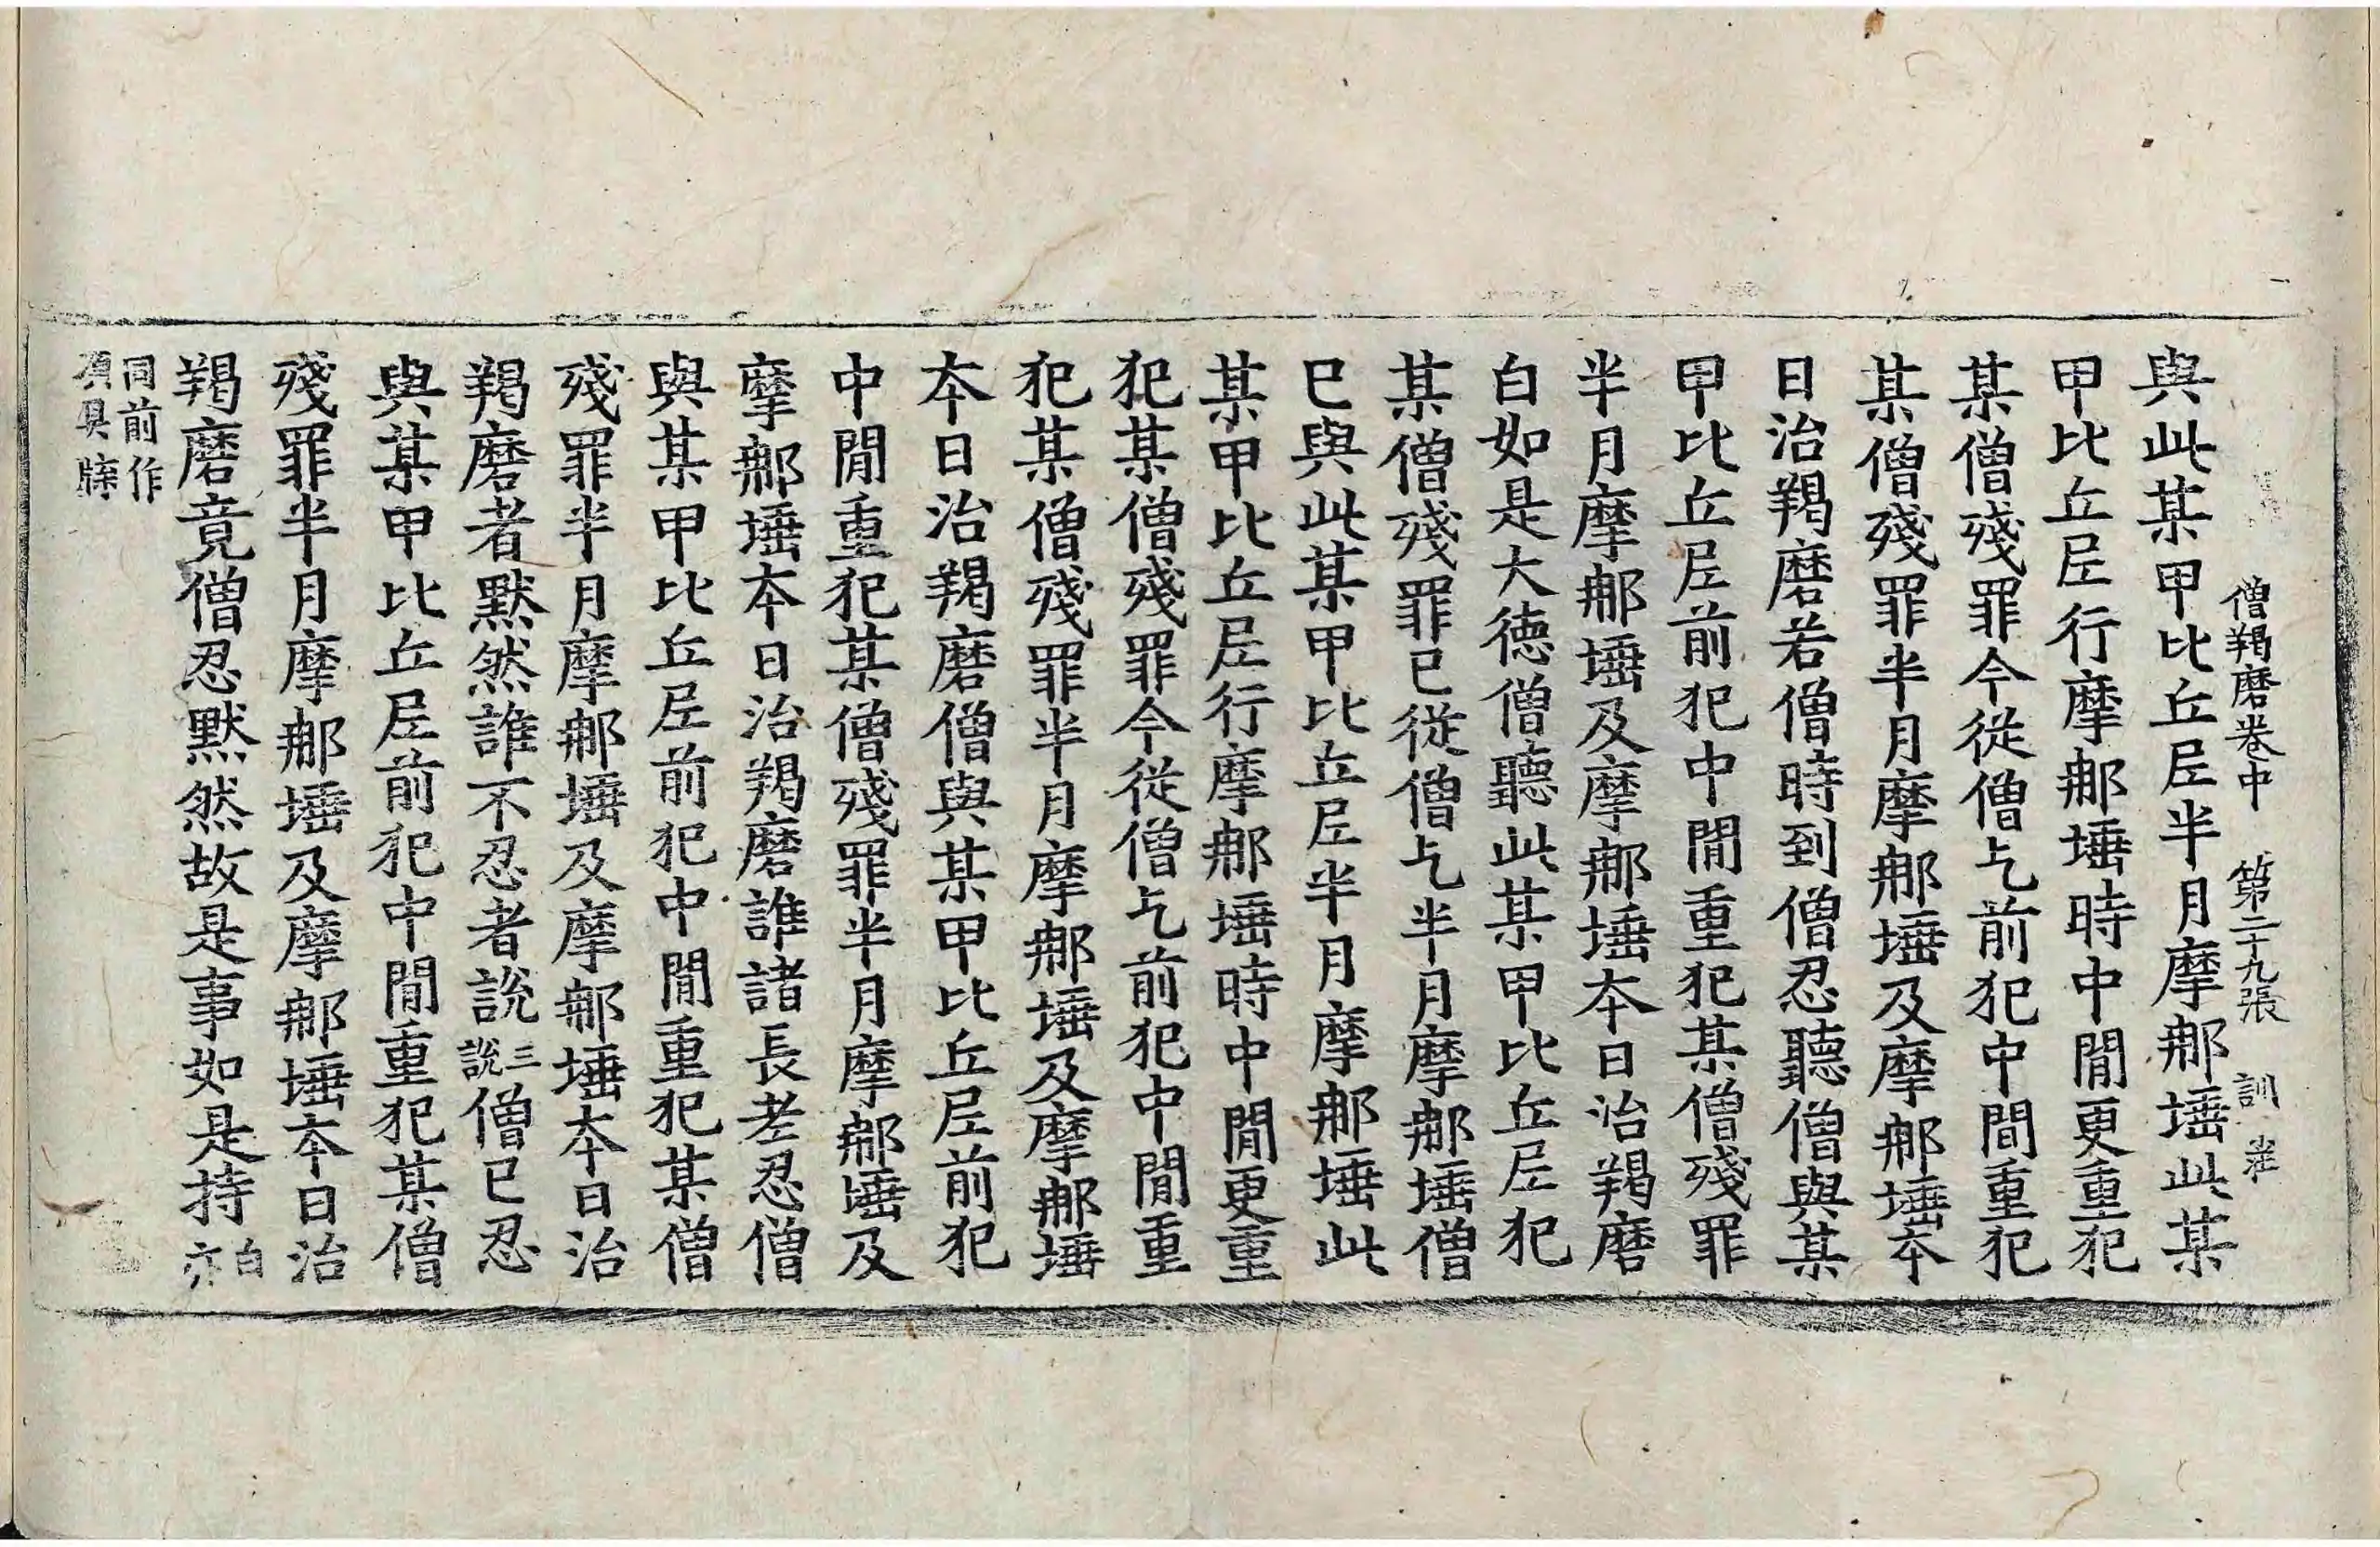 僧羯磨卷中 第二十九張 訓
與此某甲比丘尼半月摩那埵此某
甲比丘尼行摩那埵時中間更重犯
某僧殘罪今從僧乞前犯中間重犯
某僧殘罪半月摩那埵及摩那埵本
日治羯磨若僧時到僧忍聽僧與某
甲比丘尼前犯中間重犯某僧殘罪
半月摩那埵及摩那埵本日治羯磨
白如是大德僧聽此某甲比丘尼犯
某僧殘罪已從僧乞半月摩那埵僧
已與此某甲比丘尼半月摩那埵此
某甲比丘尼行摩那埵時中間更重
犯某僧殘罪今從僧乞前犯中間重
犯某僧殘罪半月摩那埵及摩那埵
本日治羯磨僧與某甲比丘尼前犯
中間重犯某僧殘罪半月摩那埵及
摩那埵本日治羯磨誰諸長老忍僧
與某甲比丘尼前犯中間重犯某僧
殘罪半月摩那埵及摩那埵本日治
羯磨者默然誰不忍者說三說僧已忍
與某甲比丘尼前犯中間重犯某僧
殘罪半月摩那埵及摩那埵本日治
羯磨竟僧忍默然故是事如是持白亦
同前作
須具牒